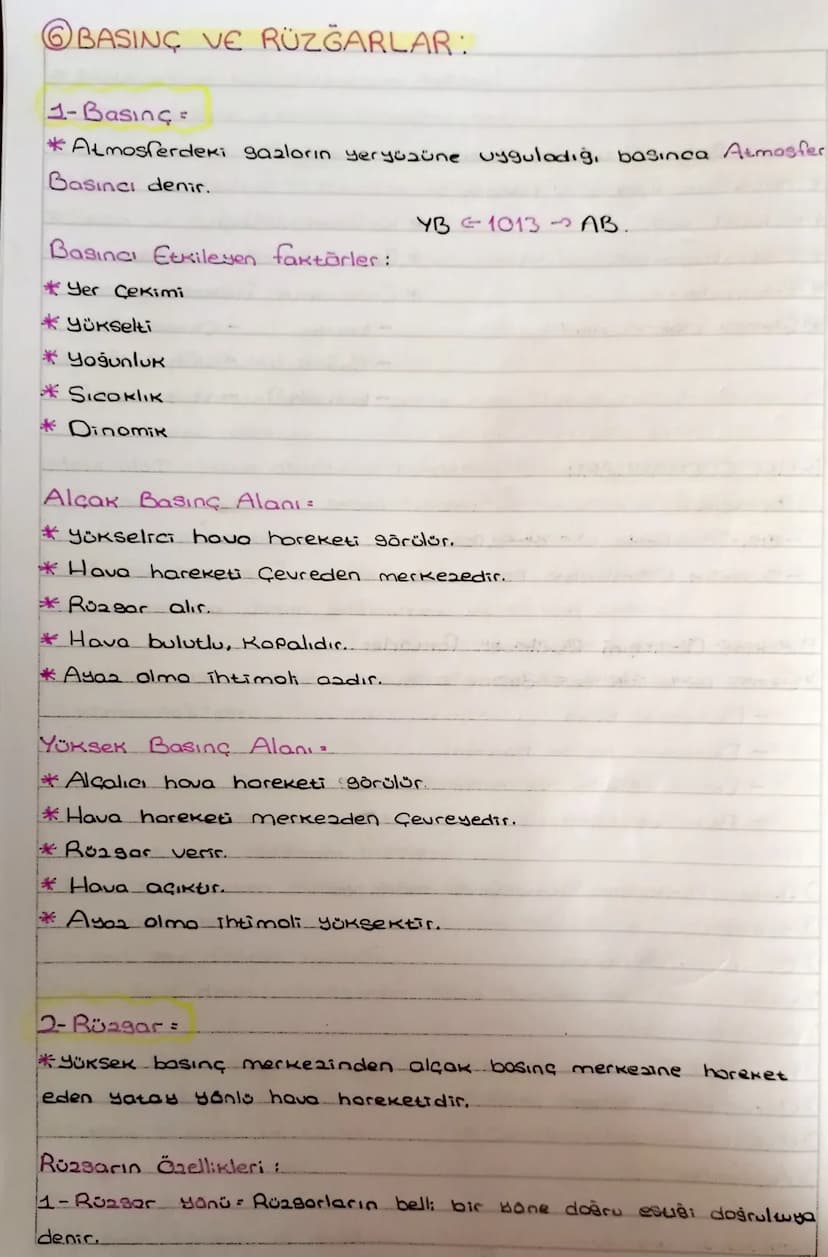 ⑥ BASINÇ VE RÜZĞARLAR:
1- Basınç =
* Atmosferdeki gazların yeryüzüne uyguladığı basınca Atmosfer
Basıncı denir.
YB ← 1013 → AB.
Basıncı Etkileyen faktörler:
* Yer Çekimi
* Yükselti
* Yoğunluk
* Sıcaklık
* Dinamik
Alçak Basınç Alanı =
* Yükselici hava hareketi görülür.
* Hava hareketi Çevreden merkezedir.
* Rüzgar alır.
* Hava bulutlu, kapalıdır.
* Ayaz olma ihtimali azdır.
Yüksek Basınç Alanı =
* Alçalıcı hava hareketi görülür.
* Hava hareketi merkezden Çevreyedir.
* Rüzgar verir.
* Hava açıktır.
* Ayaz olma ihtimali yüksektir.
2- Rüzgar =
* Yüksek basınç merkezinden alçak basınç merkezine hareket
eden yatay yönlü hava hareketidir.
Rüzgarın Özellikleri:
1- Rüzgar yönü = Rüzgarların belli bir yöne doğru estiği doğrultuya
denir.